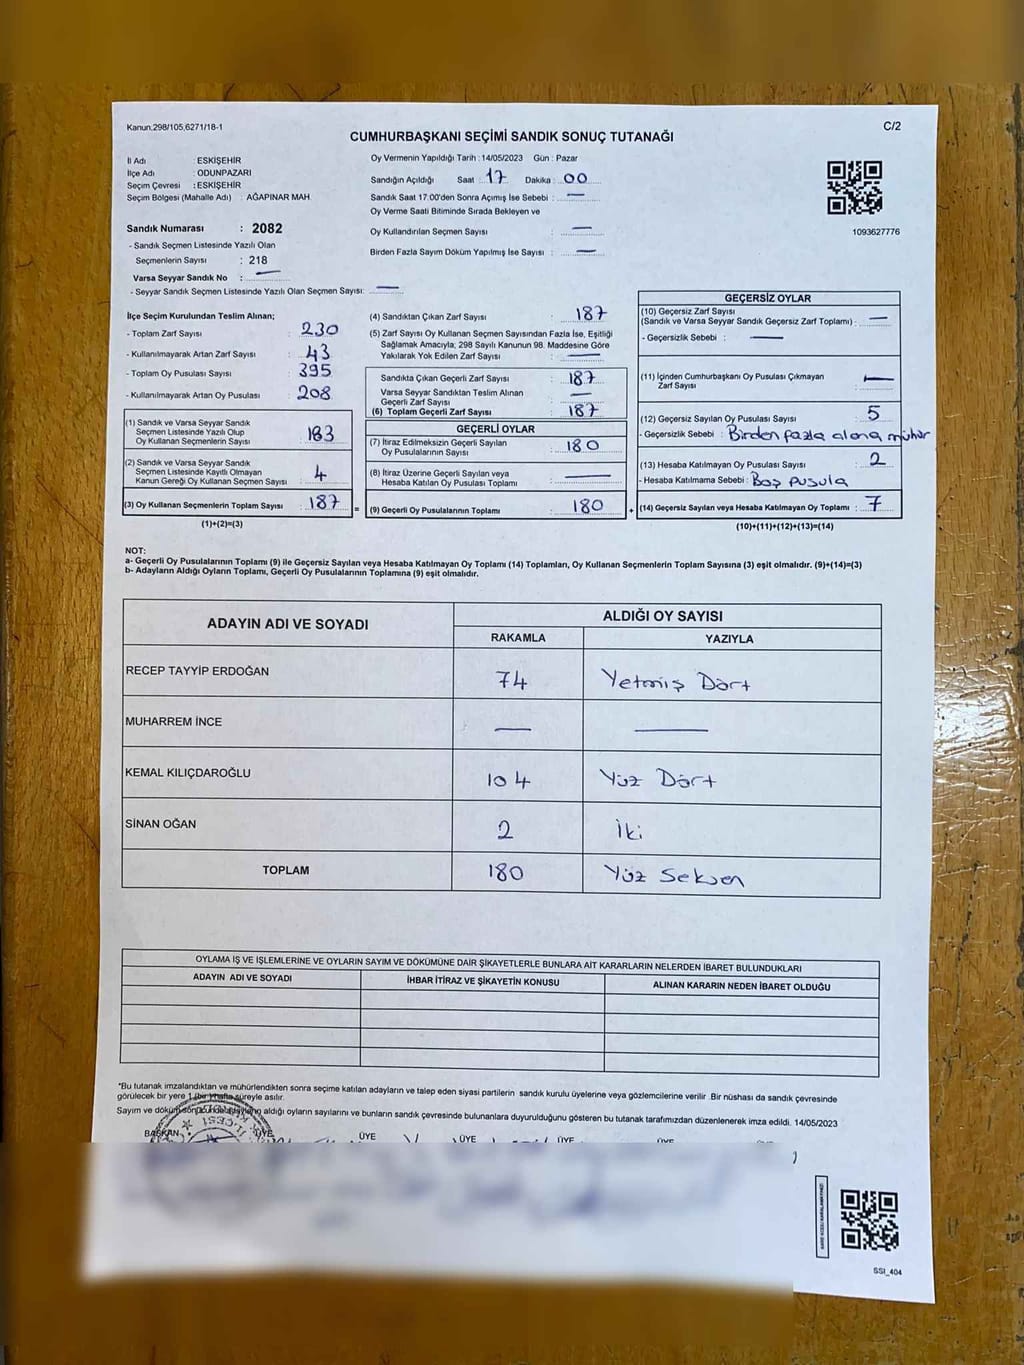 Kanun:298/105,6271/18-1
C/2
CUMHURBAŞKANI SEÇİMİ SANDIK SONUÇ TUTANAĞI
İl Adı : ESKİŞEHİR
İlçe Adı : ODUNPAZARI
Seçim Çevresi : ESKİŞEHİR
Seçim Bölgesi (Mahalle Adı) : AĞAPINAR MAH.
Sandık Numarası : 2082
- Sandık Seçmen Listesinde Yazılı Olan
Seçmenlerin Sayısı : 218
Varsa Seyyar Sandık No : —
- Seyyar Sandık Seçmen Listesinde Yazılı Olan Seçmen Sayısı: —
Oy Vermenin Yapıldığı Tarih : 14/05/2023 Gün : Pazar
Sandığın Açıldığı Saat : 17 Dakika : 00
Sandık Saat 17.00'den Sonra Açımış İse Sebebi : —
Oy Verme Saati Bitiminde Sırada Bekleyen ve
Oy Kullandırılan Seçmen Sayısı : —
Birden Fazla Sayım Döküm Yapılmış İse Sayısı : —
1093627776
İlçe Seçim Kurulundan Teslim Alınan;
- Toplam Zarf Sayısı : 230
- Kullanılmayarak Artan Zarf Sayısı : 43
- Toplam Oy Pusulası Sayısı : 395
- Kullanılmayarak Artan Oy Pusulası : 208
(1) Sandık ve Varsa Seyyar Sandık
Seçmen Listesinde Yazılı Olup
Oy Kullanan Seçmenlerin Sayısı : 183
(2) Sandık ve Varsa Seyyar Sandık
Seçmen Listesinde Kayıtlı Olmayan
Kanun Gereği Oy Kullanan Seçmen Sayısı : 4
(3) Oy Kullanan Seçmenlerin Toplam Sayısı : 187 =
(1)+(2)=(3)
(4) Sandıktan Çıkan Zarf Sayısı : 187
(5) Zarf Sayısı Oy Kullanan Seçmen Sayısından Fazla İse, Eşitliği
Sağlamak Amacıyla; 298 Sayılı Kanunun 98. Maddesine Göre
Yakılarak Yok Edilen Zarf Sayısı : —
Sandıkta Çıkan Geçerli Zarf Sayısı : 187
Varsa Seyyar Sandıktan Teslim Alınan
Geçerli Zarf Sayısı : —
(6) Toplam Geçerli Zarf Sayısı : 187
GEÇERLİ OYLAR
(7) İtiraz Edilmeksizin Geçerli Sayılan
Oy Pusulalarının Sayısı : 180
(8) İtiraz Üzerine Geçerli Sayılan veya
Hesaba Katılan Oy Pusulası Toplamı : —
(9) Geçerli Oy Pusulalarının Toplamı : 180 +
GEÇERSİZ OYLAR
(10) Geçersiz Zarf Sayısı
(Sandık ve Varsa Seyyar Sandık Geçersiz Zarf Toplamı) : —
- Geçersizlik Sebebi : —
(11) İçinden Cumhurbaşkanı Oy Pusulası Çıkmayan
Zarf Sayısı : —
(12) Geçersiz Sayılan Oy Pusulası Sayısı : 5
- Geçersizlik Sebebi : Birden fazla alana mühür
(13) Hesaba Katılmayan Oy Pusulası Sayısı : 2
- Hesaba Katılmama Sebebi : Boş pusula
(14) Geçersiz Sayılan veya Hesaba Katılmayan Oy Toplamı : 7
(10)+(11)+(12)+(13)=(14)
NOT:
a- Geçerli Oy Pusulalarının Toplamı (9) ile Geçersiz Sayılan veya Hesaba Katılmayan Oy Toplamı (14) Toplamları, Oy Kullanan Seçmenlerin Toplam Sayısına (3) eşit olmalıdır. (9)+(14)=(3)
b- Adayların Aldığı Oyların Toplamı, Geçerli Oy Pusulalarının Toplamına (9) eşit olmalıdır.
ADAYIN ADI VE SOYADI
ALDIĞI OY SAYISI
RAKAMLA YAZIYLA
RECEP TAYYİP ERDOĞAN 74 Yetmiş Dört
MUHARREM İNCE — —
KEMAL KILIÇDAROĞLU 104 Yüz Dört
SİNAN OĞAN 2 İki
TOPLAM 180 Yüz Seksen
OYLAMA İŞ VE İŞLEMLERİNE VE OYLARIN SAYIM VE DÖKÜMÜNE DAİR ŞİKAYETLERLE BUNLARA AİT KARARLARIN NELERDEN İBARET BULUNDUKLARI
ADAYIN ADI VE SOYADI İHBAR İTİRAZ VE ŞİKAYETİN KONUSU ALINAN KARARIN NEDEN İBARET OLDUĞU
*Bu tutanak imzalandıktan ve mühürlendikten sonra seçime katılan adayların ve talep eden siyasi partilerin sandık kurulu üyelerine veya gözlemcilerine verilir .Bir nüshası da sandık çevresinde
görülecek bir yere 1 (bir) hafta süreyle asılır.
Sayım ve döküm sonucunda adayların aldığı oyların sayılarını ve bunların sandık çevresinde bulunanlara duyurulduğunu gösteren bu tutanak tarafımızdan düzenlenerek imza edildi. 14/05/2023
BAŞKAN ÜYE ÜYE ÜYE ÜYE ÜYE
SSI_404